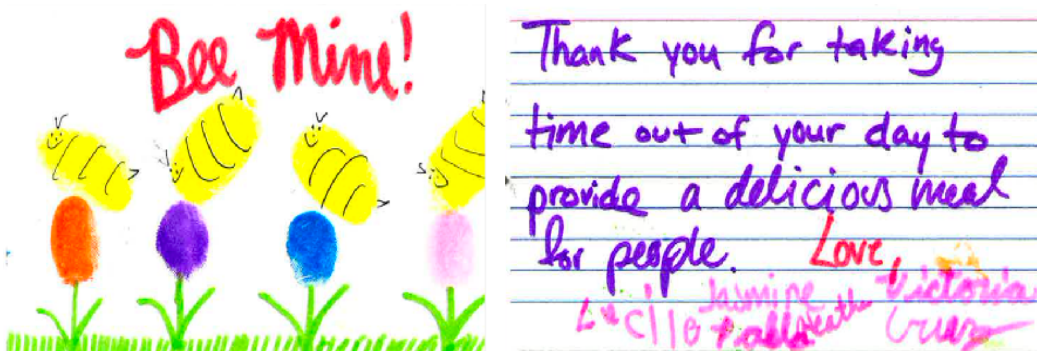 Bee Mine!
Thank you for taking
time out of your day to
provide a delicious meal
for people.
Love,
Victoria
Cruz